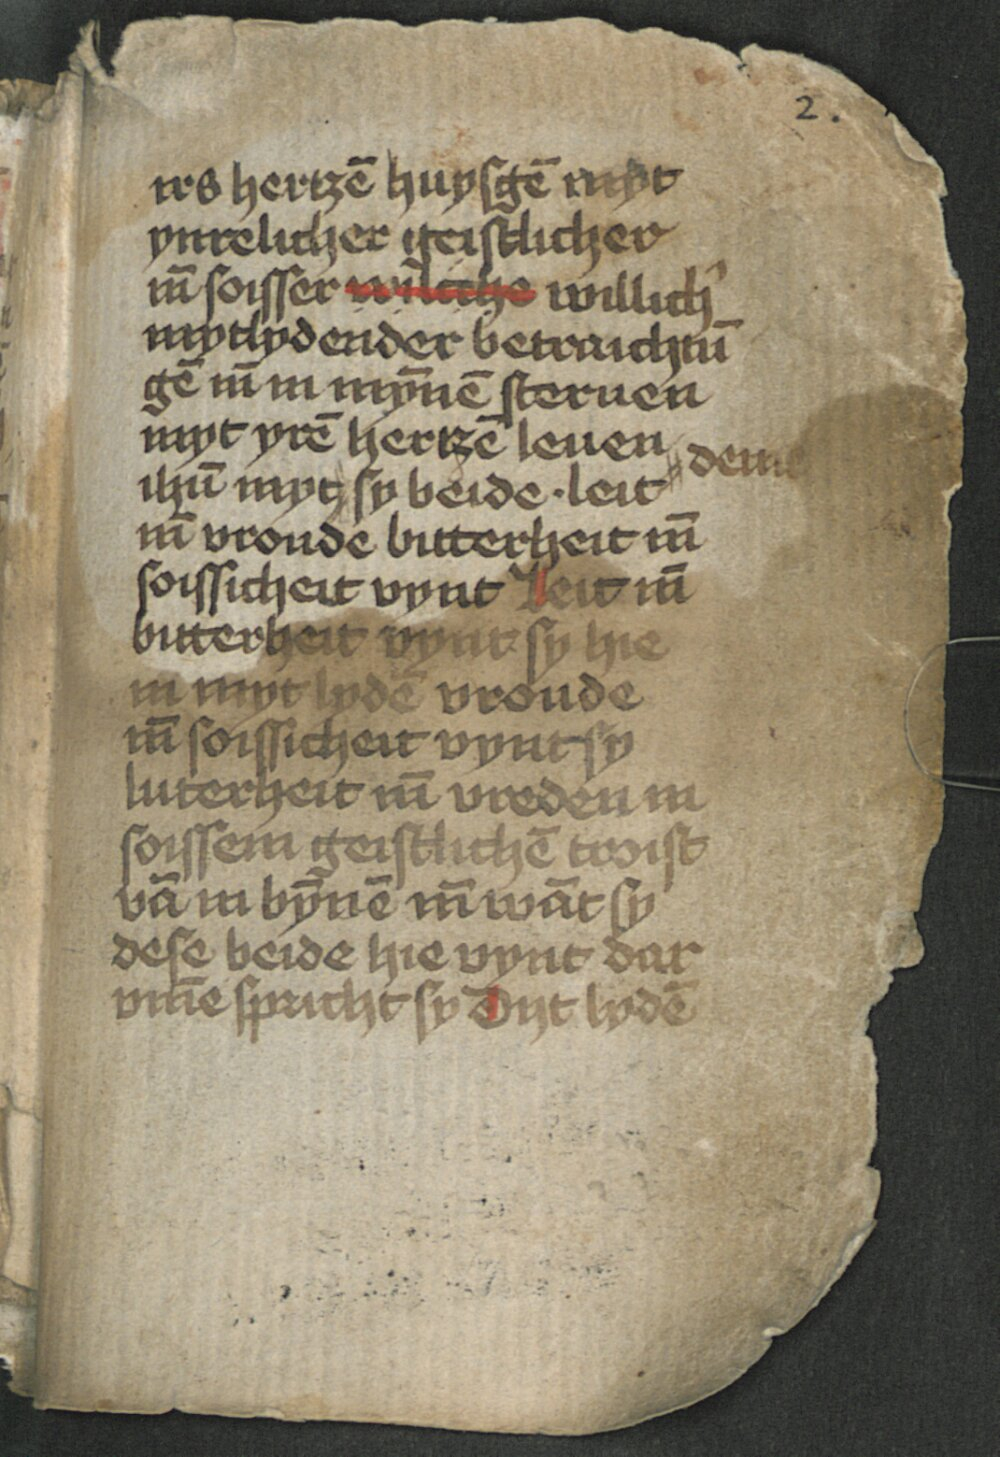 2.
irs hertzē huysgē myt
ynrelicher geistlicher
in̄ soisser willich'
mytlydender betraichtū
gē in̄ in mȳnē steruen
myt yrē hertzē leuen
ihū myt sy beide · leit
in̄ vroude bitterheit in̄
soissicheit vynt Leit in̄
bitterheit vynt sy hie
in myt lydē vroude
in̄ soissicheit vynt sy
luterheit in̄ vreden in
soissem geistlichē troist
vā in bȳnē in̄ wāt sy
dese beide hie vynt dar
vm̄e spricht sy Dyt lydē